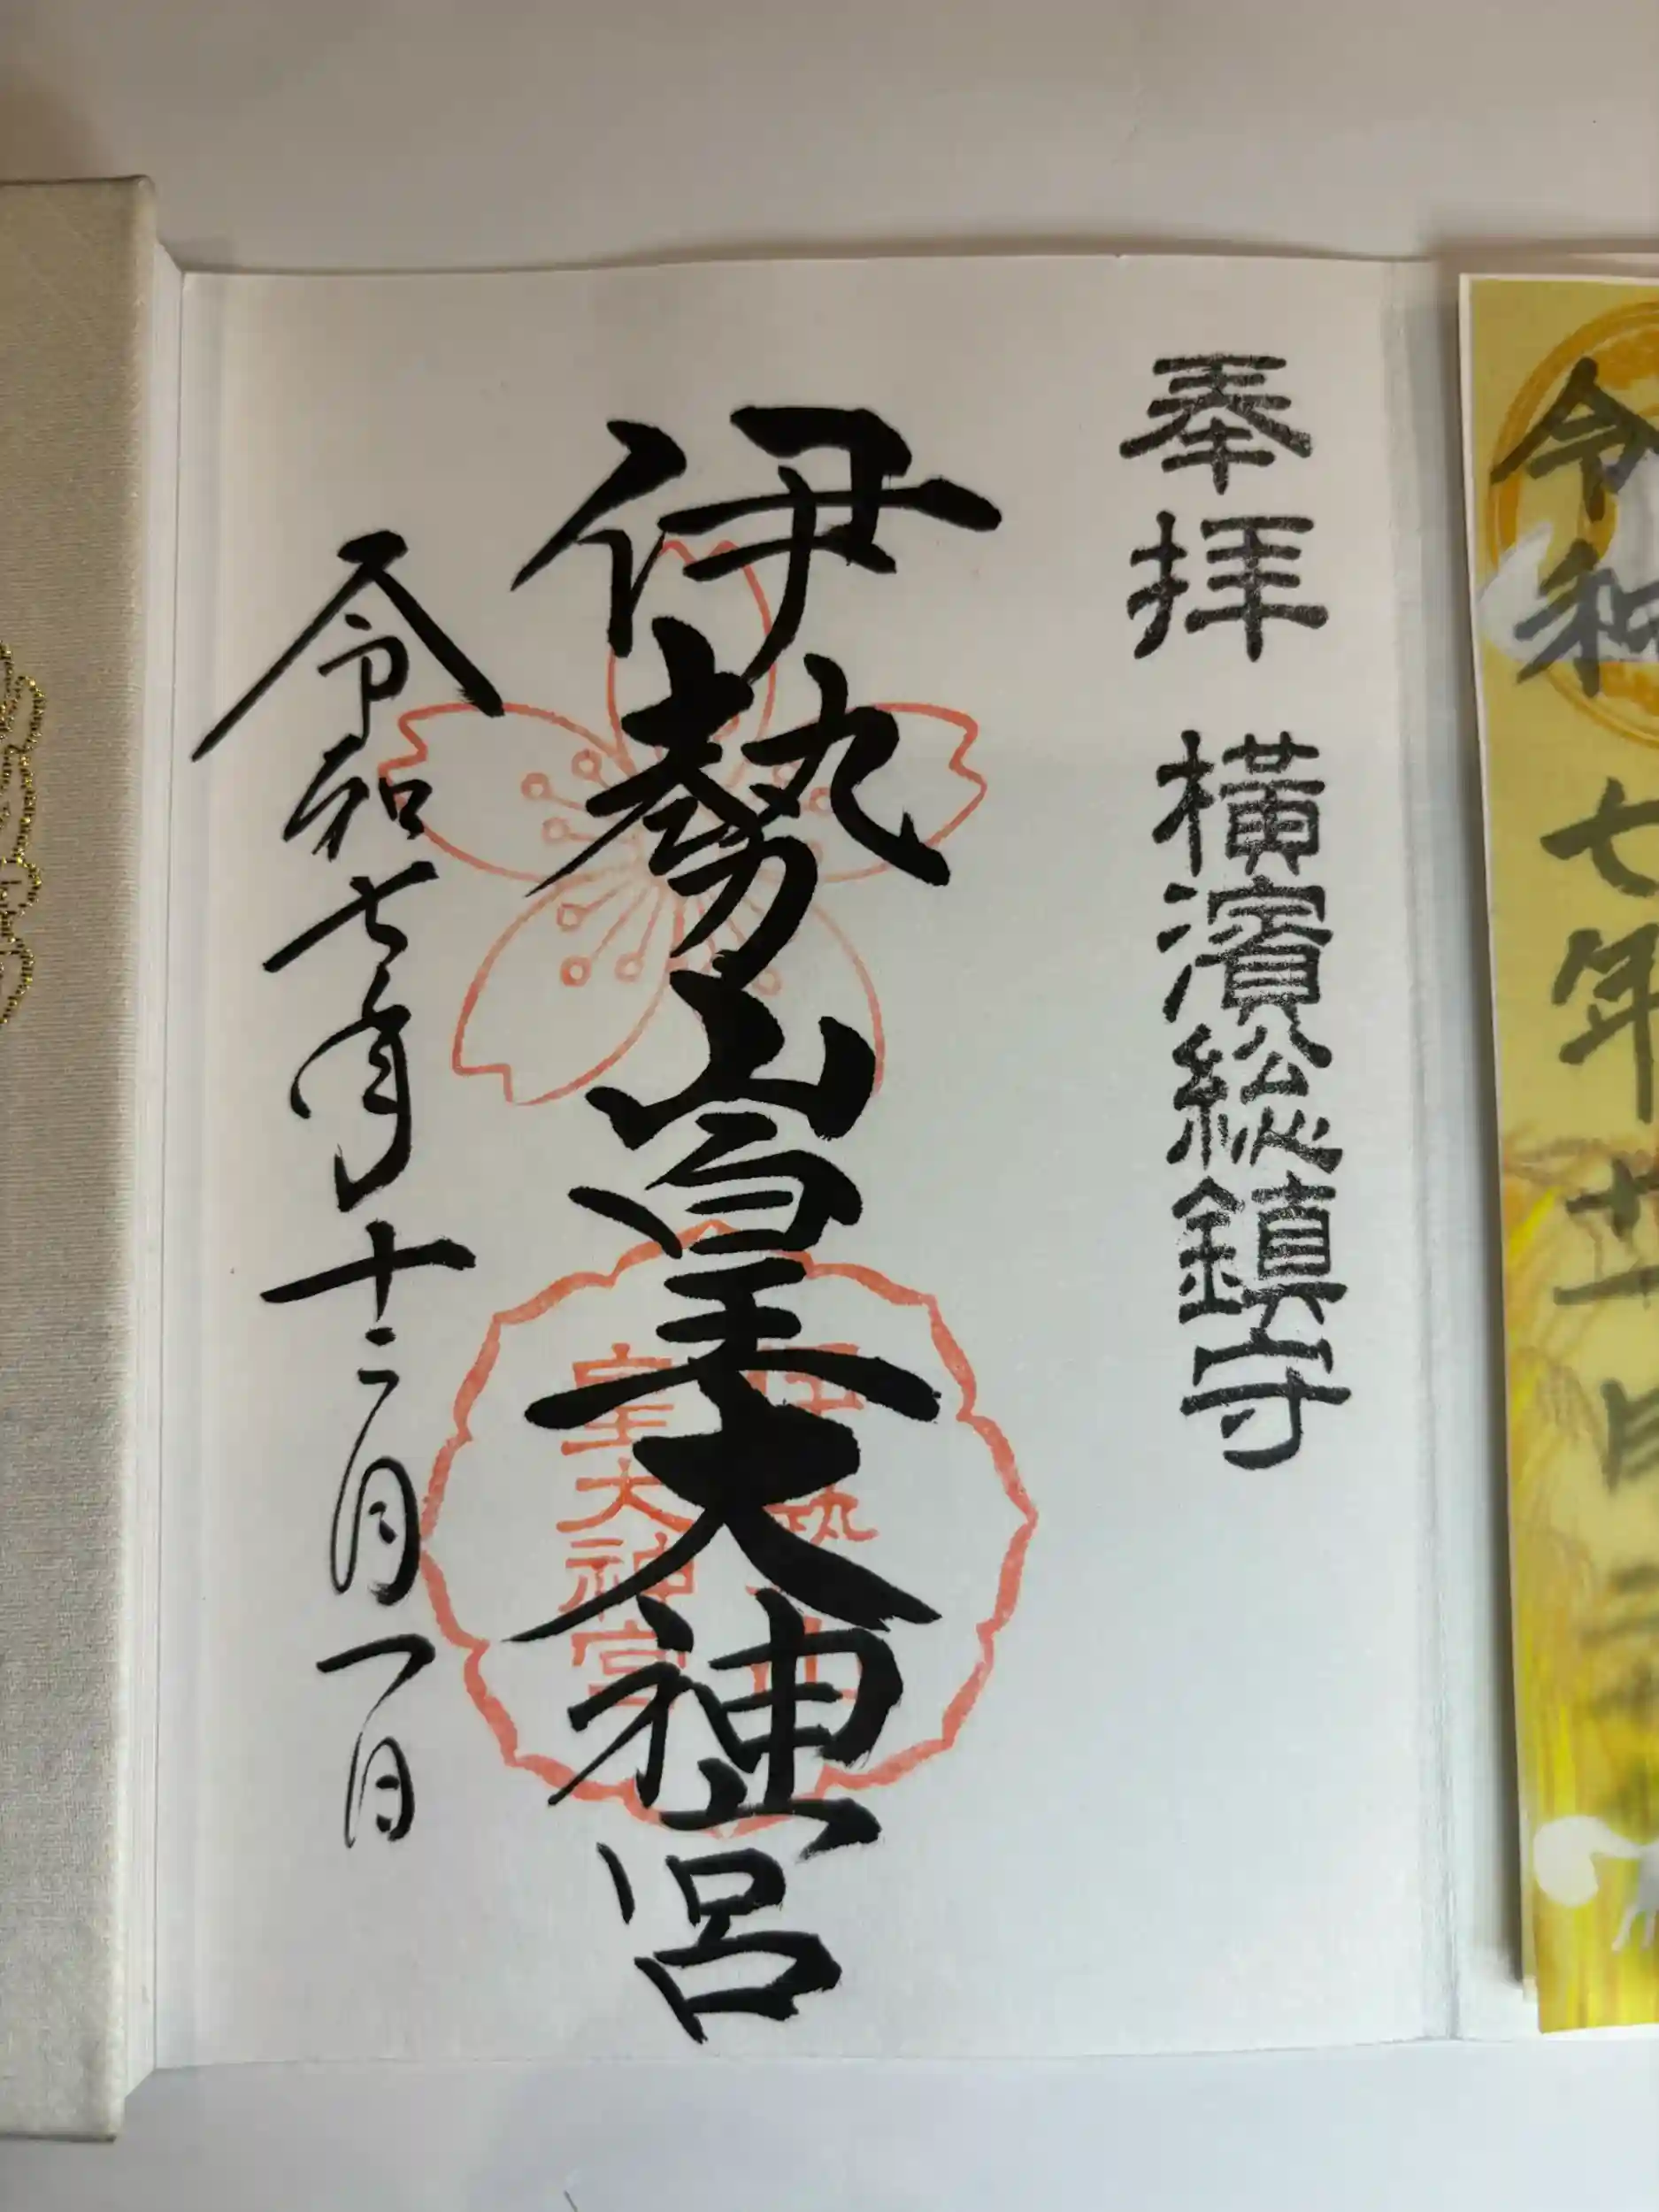 奉拝 横濱総鎮守
伊勢山皇大神宮
令和七年十二月一日
伊勢山
皇大神宮
令和七年